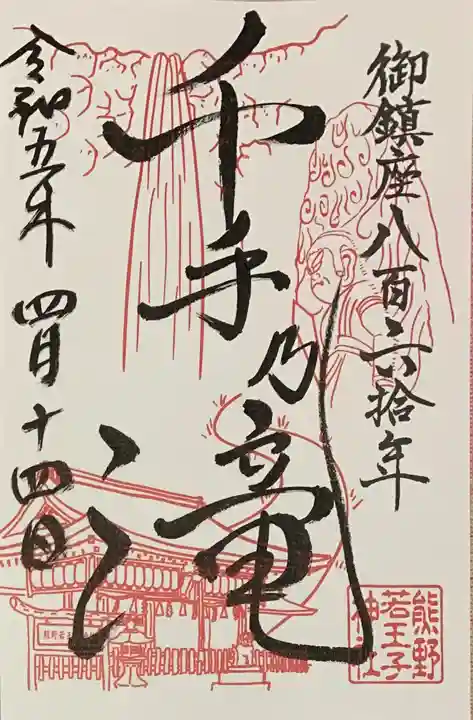 御鎮座八百六拾年
千手乃滝
令和五年 四月十四日
熊野
若王子
神社